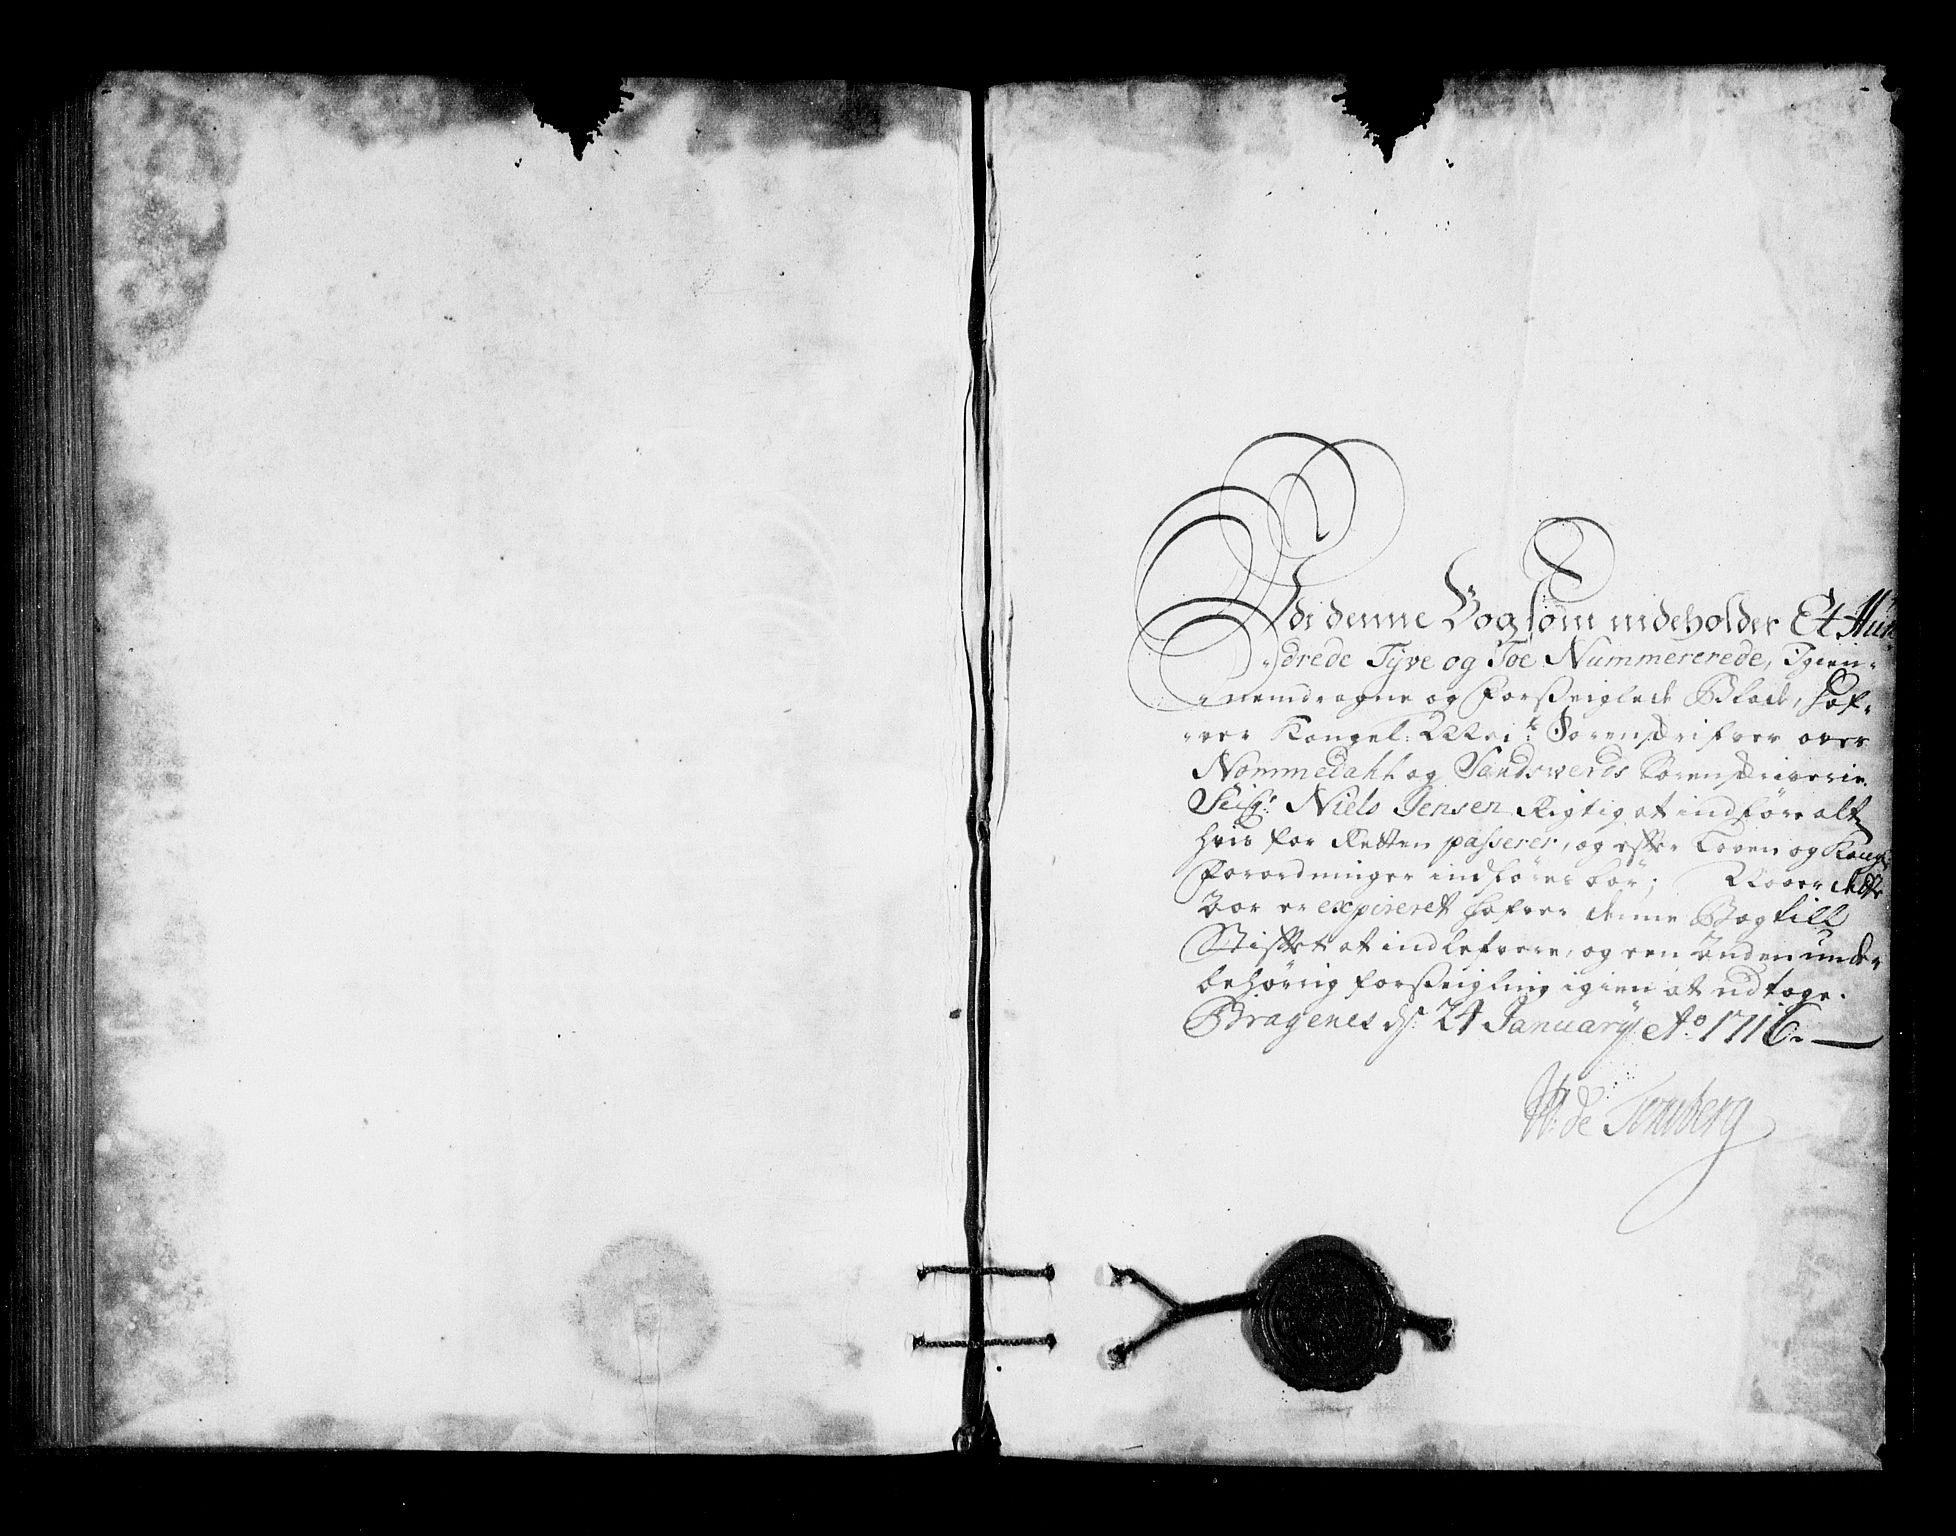 Udi denne Bog som indeholder Et Hun
-drede Tyve og Toe Nummererede, Igien-
-nemdragne og Forseiglede Blade, hafr-
-ver Kongel: May:ts Sorenskrifver over
Nommedahl og Sandswerds Sorenskriverie.
Seigr: Niels Jensen Rigtig at indføre alt
hvis for Retten passerer, og efter Loven og Kongl:
Forordninger indføres bør; Naar dette
Bog er expireret hafver denne Bog till
Stiftet at indlefvere, og een anden under
behørrig forseigling igien at udtage.
Bragenes ds: 24 January Ao. 1716.
W: de Tonsberg